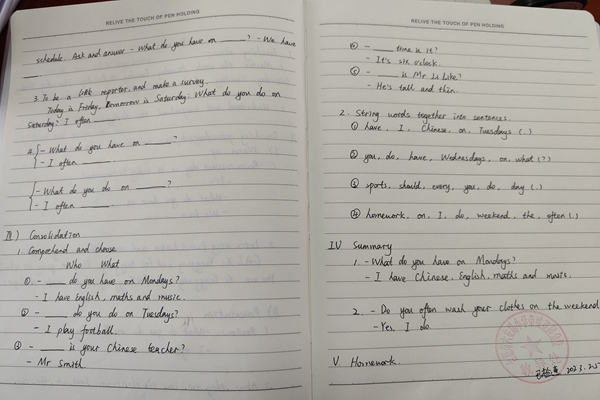 RELIVE THE TOUCH OF PEN HOLDING
schedule. Ask and answer - What do you have on ____? - We have
____.
3. To be a little reporter, and make a survey.
Today is Friday, tomorrow is Saturday. What do you do on
Saturday? I often ____.
a. - What do you have on ____?
- I often ____.
- What do you do on ____?
- I often ____.
III) Consolidation
1. Comprehend and choose
Who What
①. - ____ do you have on Mondays?
- I have English, maths and music.
② - ____ do you do on Tuesdays?
- I play football.
③ - ____ is your Chinese teacher?
- Mr Smith.
RELIVE THE TOUCH OF PEN HOLDING
④ - ____ time is it?
- It's six o'clock.
⑤ - ____ is Mr Li like?
- He's tall and thin.
2. String words together into sentences.
① have, I, Chinese, on, Tuesdays (.)
② you, do, have, Wednesdays, on, what (?)
③ sports, should, every, you, do, day (.)
④ homework, on, I, do, weekend, the, often (.)
IV Summary
1. - What do you have on Mondays?
- I have Chinese, English, maths and music.
2. - Do you often wash your clothes on the weekend
- Yes, I do.
V. Homework.
2023.2.25